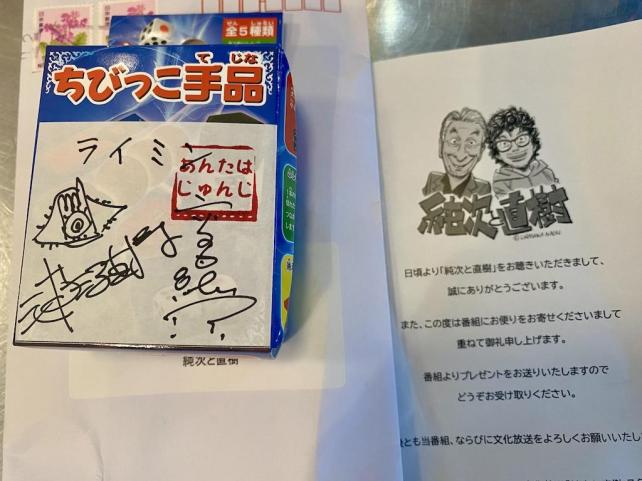 全5種類
ぜん しゅるい
て じな
ちびっこ手品
ライミン
あんたは
じゅんじ
純次と直樹
純次と直樹
日頃より「純次と直樹」をお聴きいただきまして、
誠にありがとうございます。
また、この度は番組にお便りをお寄せくださいまして
重ねて御礼申し上げます。
番組よりプレゼントをお送りいたしますので
どうぞお受け取りください。
とも当番組、ならびに文化放送をよろしくお願いいたし